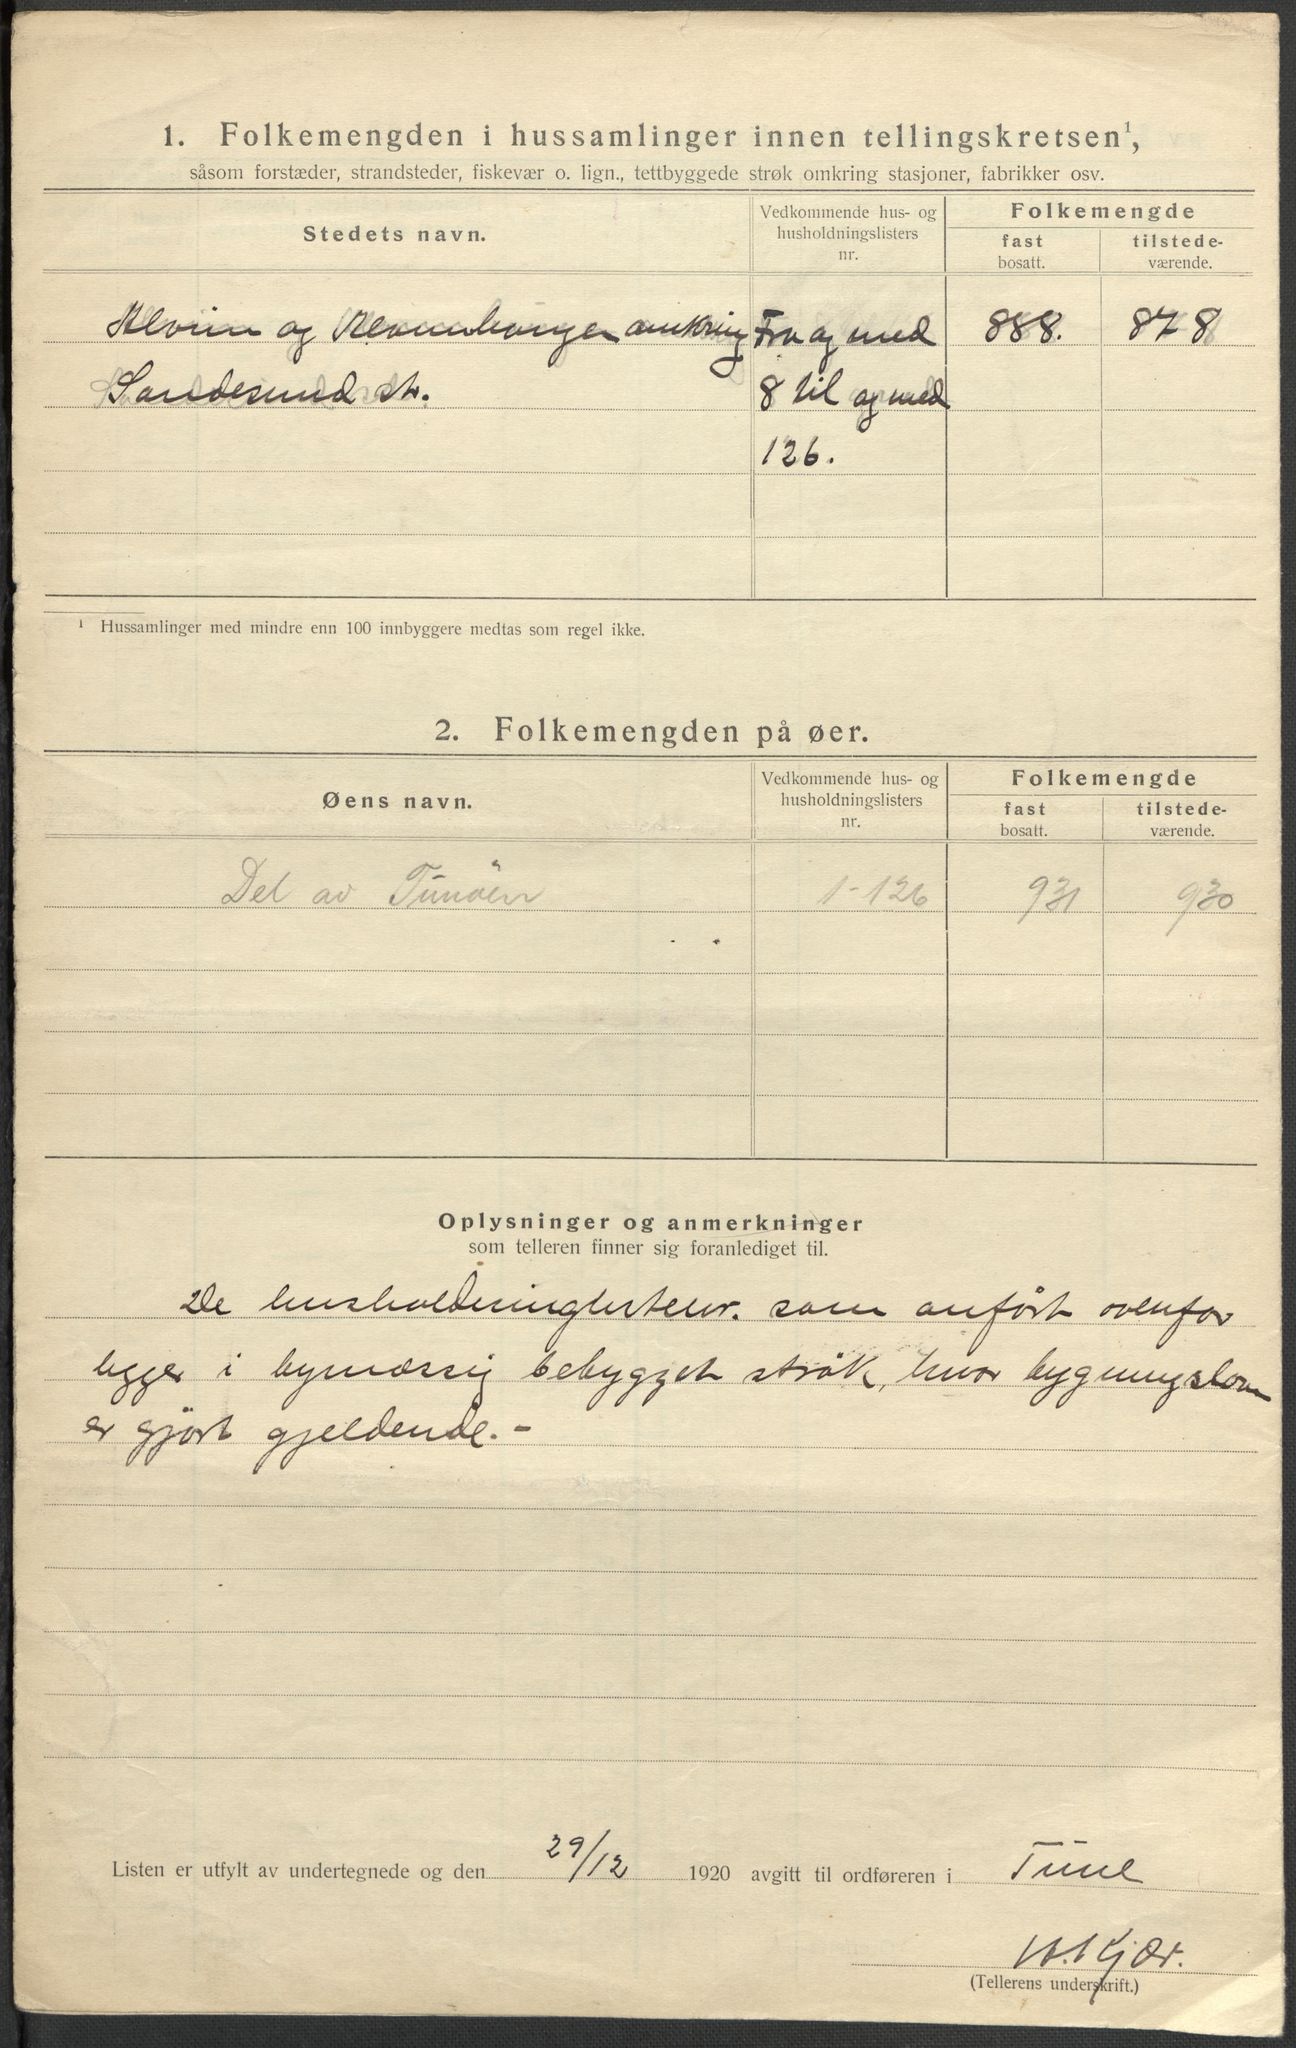 1. Folkemengden i hussamlinger innen tellingskretsen¹,
såsom forstæder, strandsteder, fiskevær o. lign., tettbyggede strøk omkring stasjoner, fabrikker osv.
Stedets navn.
Vedkommende hus- og husholdningslisters nr.
Folkemengde
fast bosatt.
tilstede-værende.
Alvim og Alvimhaugen omkring Fra og med 888. 878
Sandesund st. 8 til og med
126.
¹ Hussamlinger med mindre enn 100 innbyggere medtas som regel ikke.
2. Folkemengden på øer.
Øens navn.
Vedkommende hus- og husholdningslisters nr.
Folkemengde
fast bosatt.
tilstede-værende.
Del av Tunöen 1-126 931 930
Oplysninger og anmerkninger
som telleren finner sig foranlediget til.
De husholdningslistenr. som anfört ovenfor
ligger i bymæssig bebygget strök, hvor bygningsloven
er gjört gjeldende. -
Listen er utfylt av undertegnede og den 29/12 1920 avgitt til ordføreren i Tune
Kjær.
(Tellerens underskrift.)